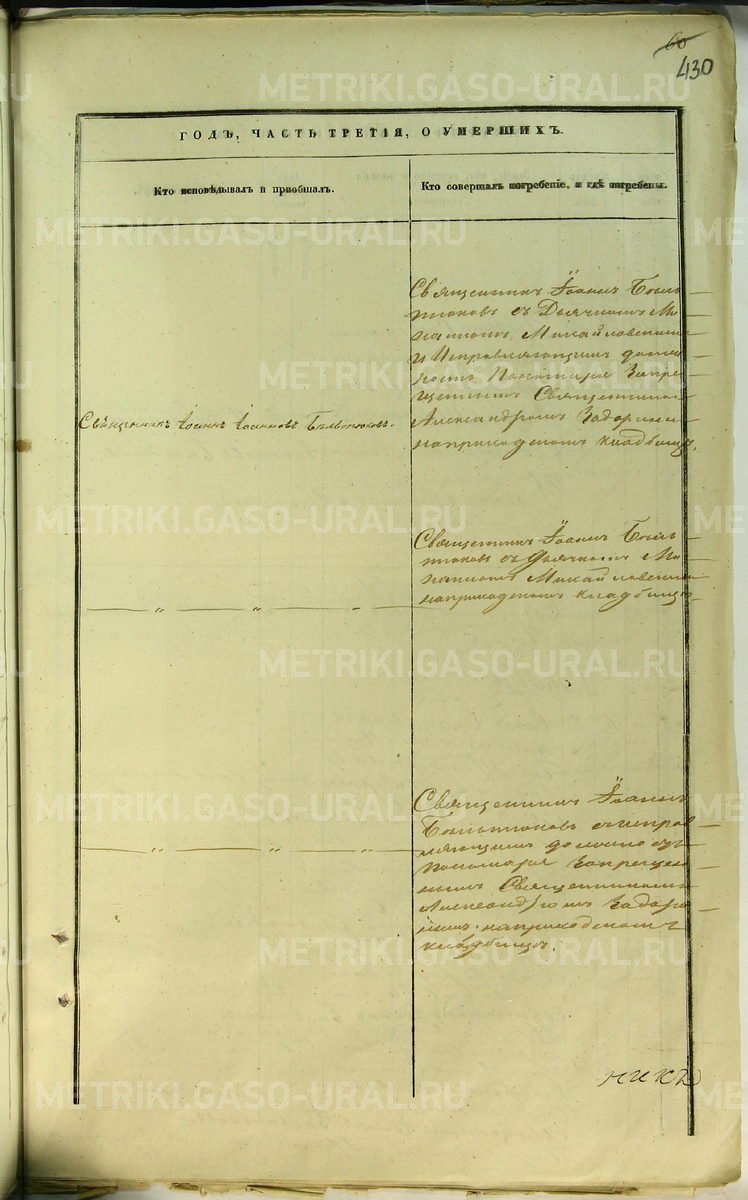 60
430
ГОДЪ, ЧАСТЬ ТРЕТІЯ, О УМЕРШИХЪ.
Кто исповѣдывалъ и пріобщалъ.
Кто совершалъ погребеніе, и гдѣ погребены.
Священникъ Іоаннъ Іоанновъ Бѣльтюковъ.
Священникъ Іоаннъ Бѣль-
тюковъ съ Дьячкомъ
Михайловскимъ
и Исправляющимъ долж-
ность Пономаря Запре-
щеннымъ Священникомъ
Александромъ Задоринымъ
на приходскомъ кладбищѣ.
Священникъ Іоаннъ Бѣль-
тюковъ съ Дьячкомъ
Михайловскимъ
на приходскомъ кладбищѣ
Священникъ Іоаннъ
Бѣльтюковъ с исправ-
ляющимъ должность
пономаря Запрещен-
нымъ Священникомъ
Александромъ Задори-
нымъ на приходскомъ
кладбищѣ.
METRIKI.GASO-URAL.RU